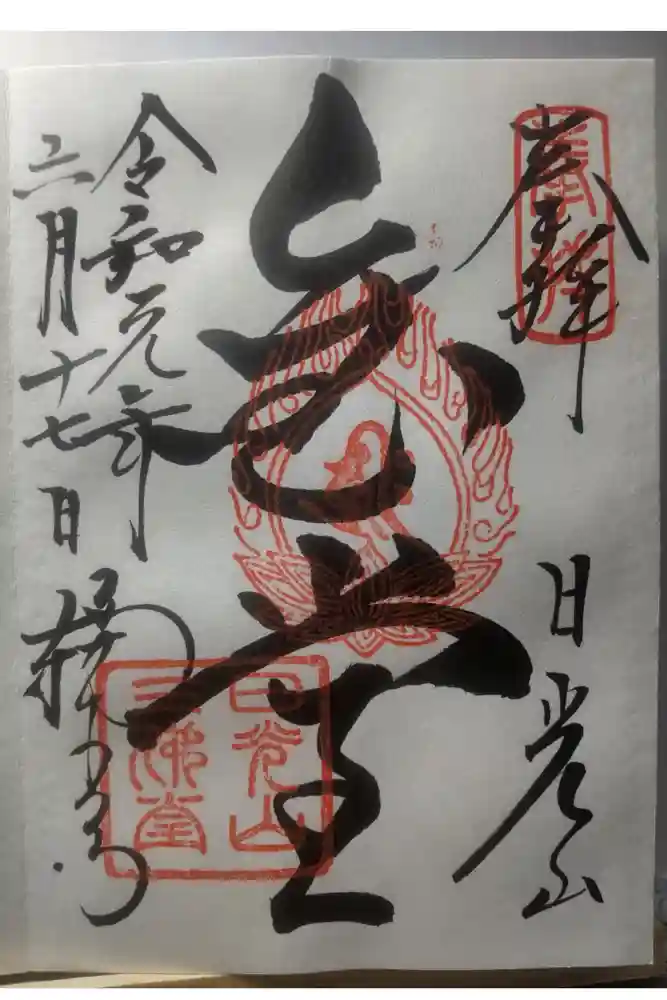 奉拝
奉拝
日光山
金堂
日光山
三佛堂
令和元年
六月十七日
輪王寺